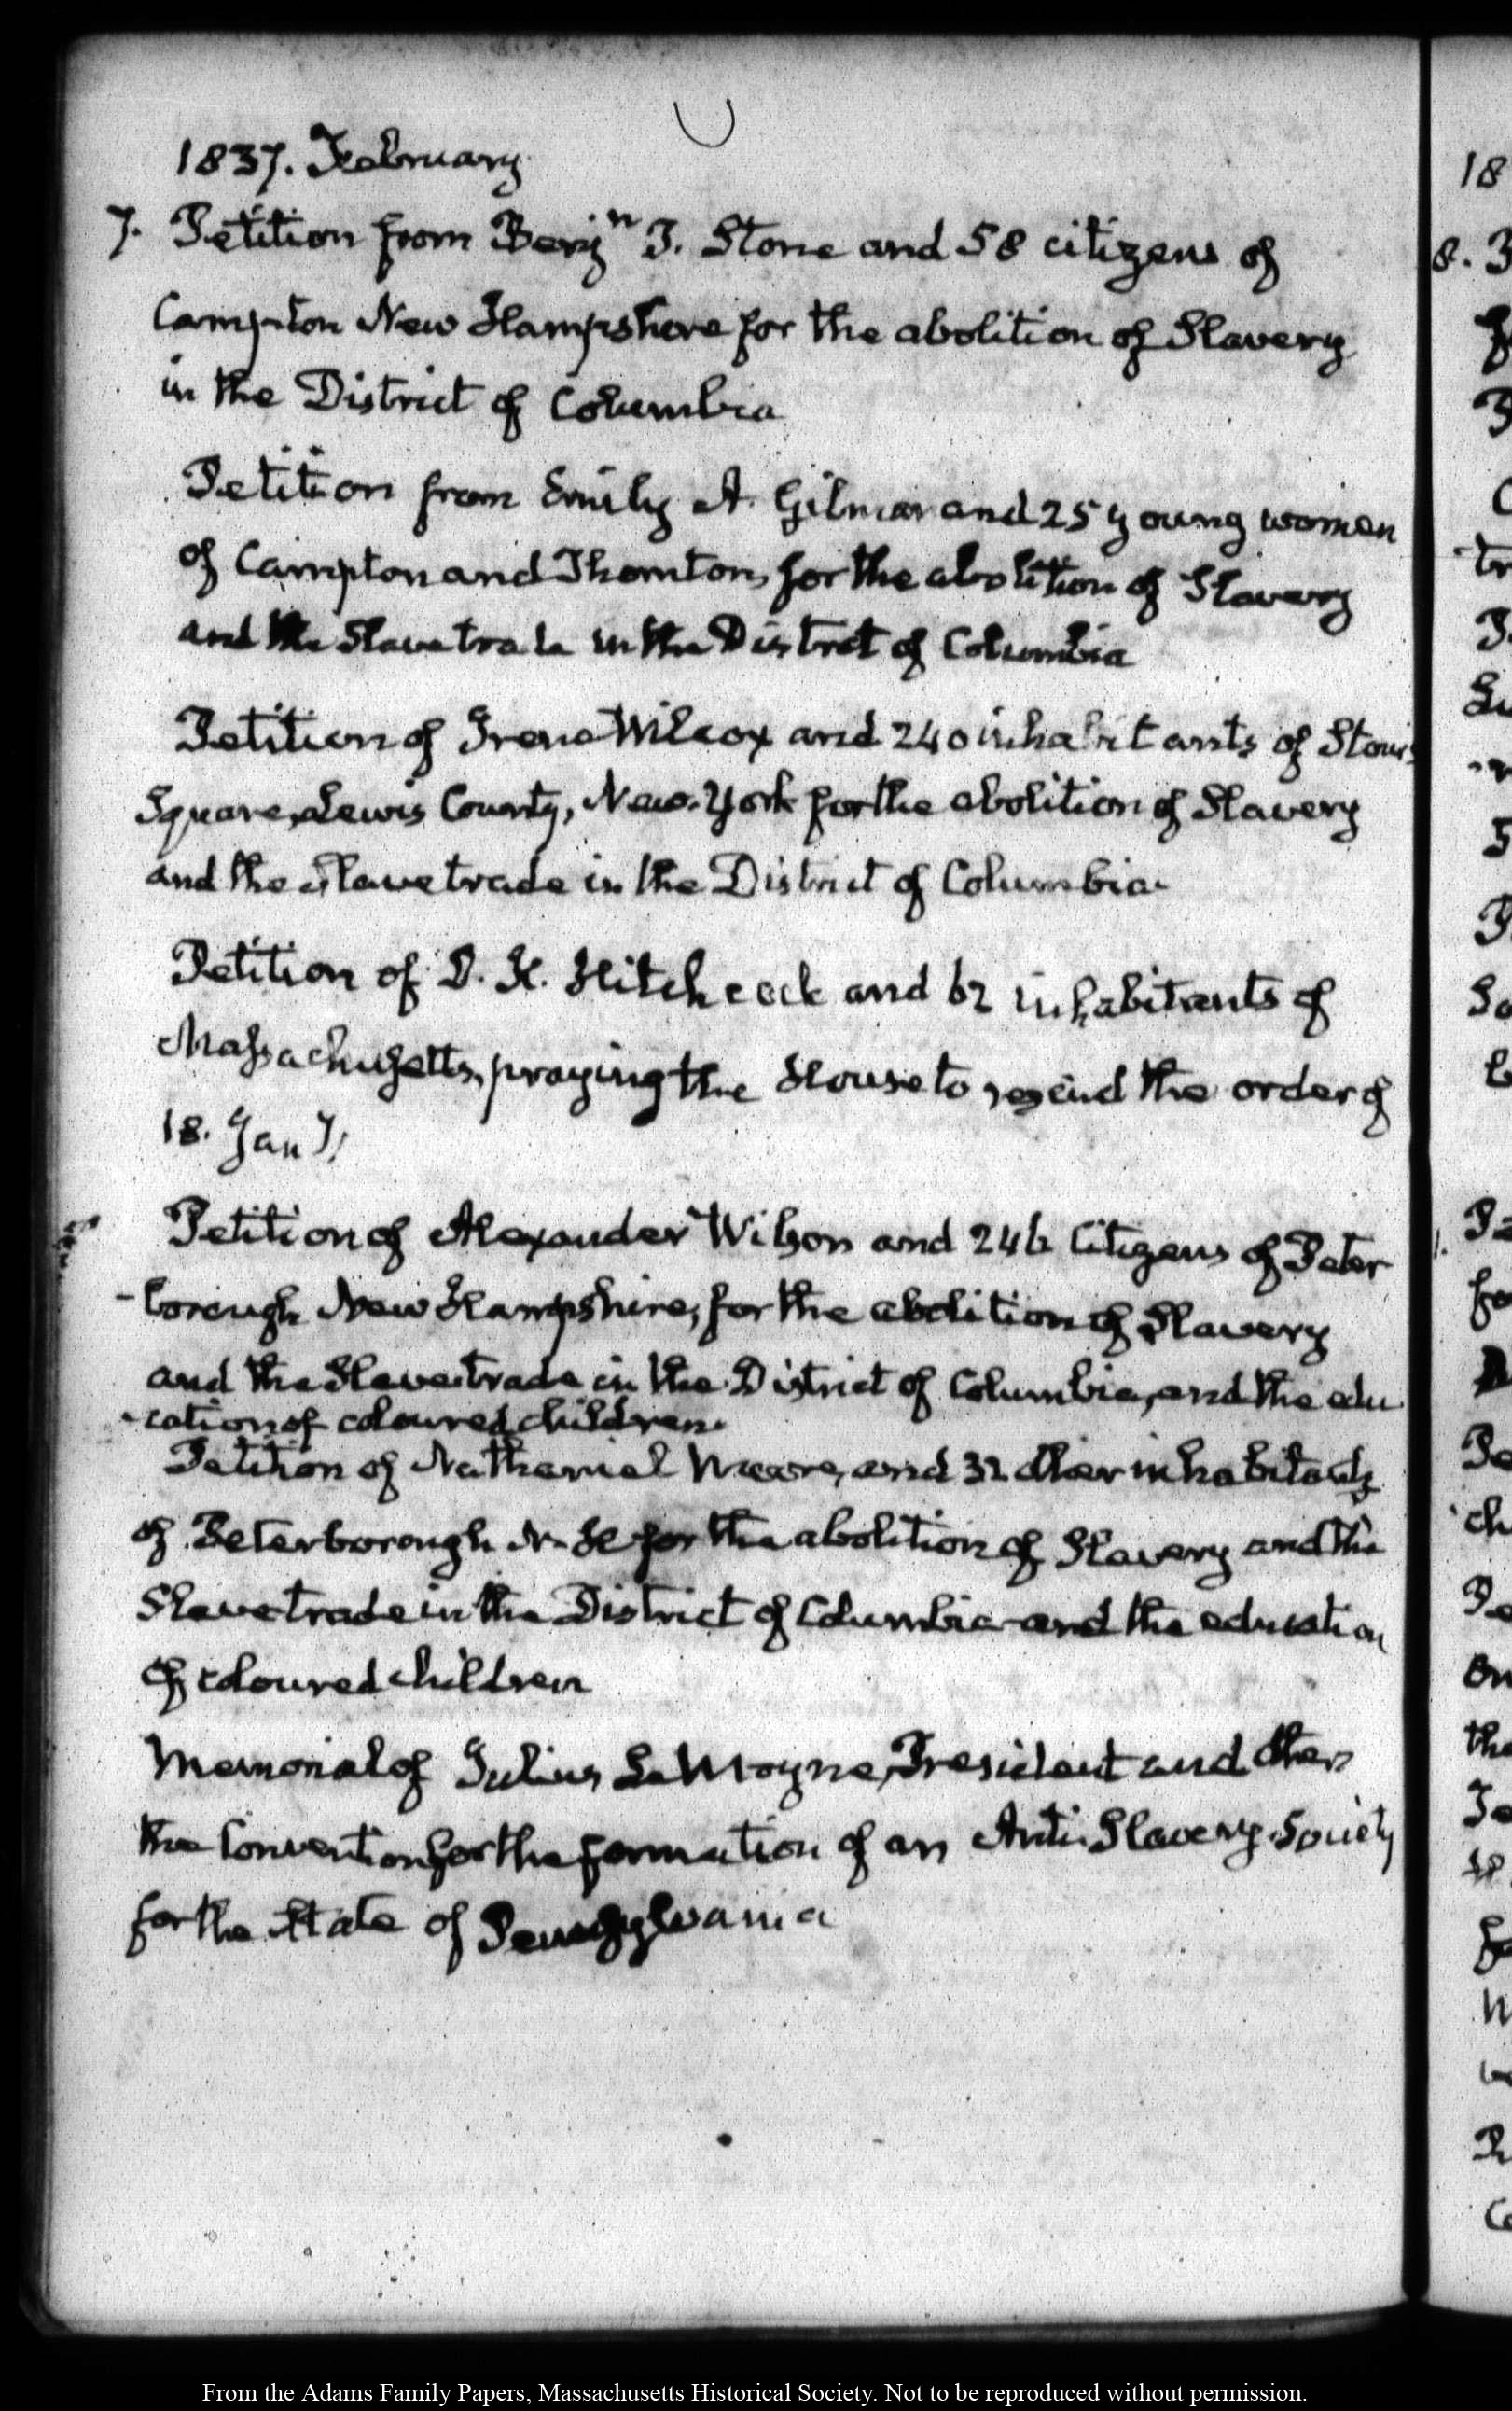 1837. February
7. Petition from Benjn T. Stone and 58 citizens of
Campton New Hampshire for the abolition of Slavery
in the District of Columbia
Petition from Emily A. Gilman and 25 young women
of Campton and Thornton, for the abolition of Slavery
and the Slave trade in the District of Columbia
Petition of Irena Wilcox and 240 inhabitants of Stow's
Square, Lewis County, New-York for the abolition of Slavery
and the slave trade in the District of Columbia
Petition of D. K. Hitchcock and 62 inhabitants of
Massachusetts, praying the House to rescind the order of
18. Jany
Petition of Alexander Wilson and 246 Citizens of Peter
-borough New Hampshire, for the abolition of Slavery
and the Slave trade in the District of Columbia, and the edu
-cation of coloured children.
Petition of Nathaniel and 32 other inhabitants
of Peterborough N. H for the abolition of Slavery and the
Slave trade in the District of Columbia and the education
of coloured children
Memorial of Julius Le Moyne, President and others
the Convention for the formation of an Anti-Slavery Society
for the State of Pennsylvania
From the Adams Family Papers, Massachusetts Historical Society. Not to be reproduced without permission.